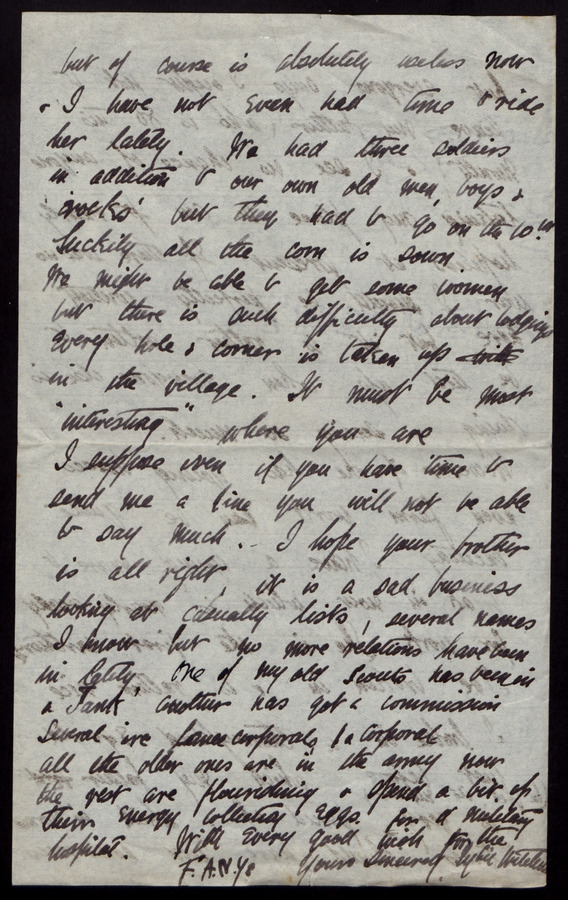 but of course is absolutely useless now
& I have not even had time to ride
her lately. We had three soldiers
in addition to our own old men, boys &
'crocks' but they had to go on the 10th
luckily all the corn is sown.
We might be able to get some women
but there is such difficulty about lodgings
every hole & corner is taken up
in the village. It must be most
"interesting" where you are
I suppose even if you have time to
send me a line you will not be able
to say much. I hope your brother
is all right it is a sad business
looking at casualty lists, several names
I know but no more relations have been
in lately. One of my old Scouts has been in
a 'Tank' another has got a commission
Several are lance corporals, 1 a corporal
all the older ones are in the army now
the rest are flourishing & spend a bit of
their energy collecting eggs for a military
hospital. With every good wish for the
F.A.N.Ys Yours sincerely Sybil